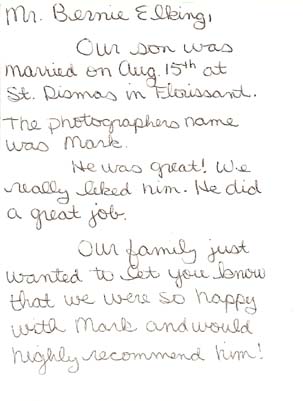 Mr. Bernie Elking,
Our son was
married on Aug. 15th at
St. Dismas in Florissant.
The photographers name
was Mark.
He was great! We
really liked him. He did
a great job.
Our family just
wanted to let you know
that we were so happy
with Mark and would
highly recommend him!